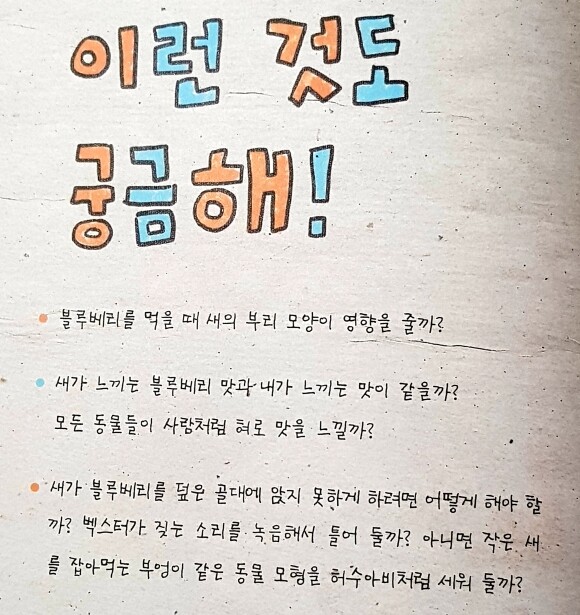 이런 것도
궁금해!
블루베리를 먹을 때 새의 부리 모양이 영향을 줄까?
새가 느끼는 블루베리 맛과 내가 느끼는 맛이 같을까?
모든 동물들이 사람처럼 혀로 맛을 느낄까?
새가 블루베리를 덮은 골대에 앉지 못하게 하려면 어떻게 해야 할
까? 벡스터가 짖는 소리를 녹음해서 틀어 둘까? 아니면 작은 새
를 잡아먹는 부엉이 같은 동물 모형을 허수아비처럼 세워 둘까?